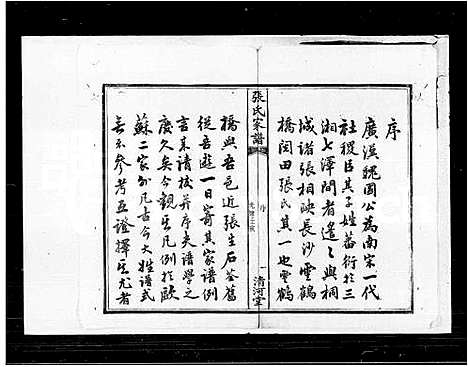 序
廣漢魏國公為南宋一代
社稷臣其子姓蕃衍於三
湘七澤間者遑〻與桐
城諸張相映長沙雲鶴
橋闵田張氏其一也雲鶴
張氏家譜
序
一
清河堂
橋與吾邑近張生石荃舊
從吾遊一日寄其家譜例
言來請校并序夫譜學之
廢久矣今觀其凡例於歐
蘇二家外凡古今大姓譜式
無不參考互證擇其尤者